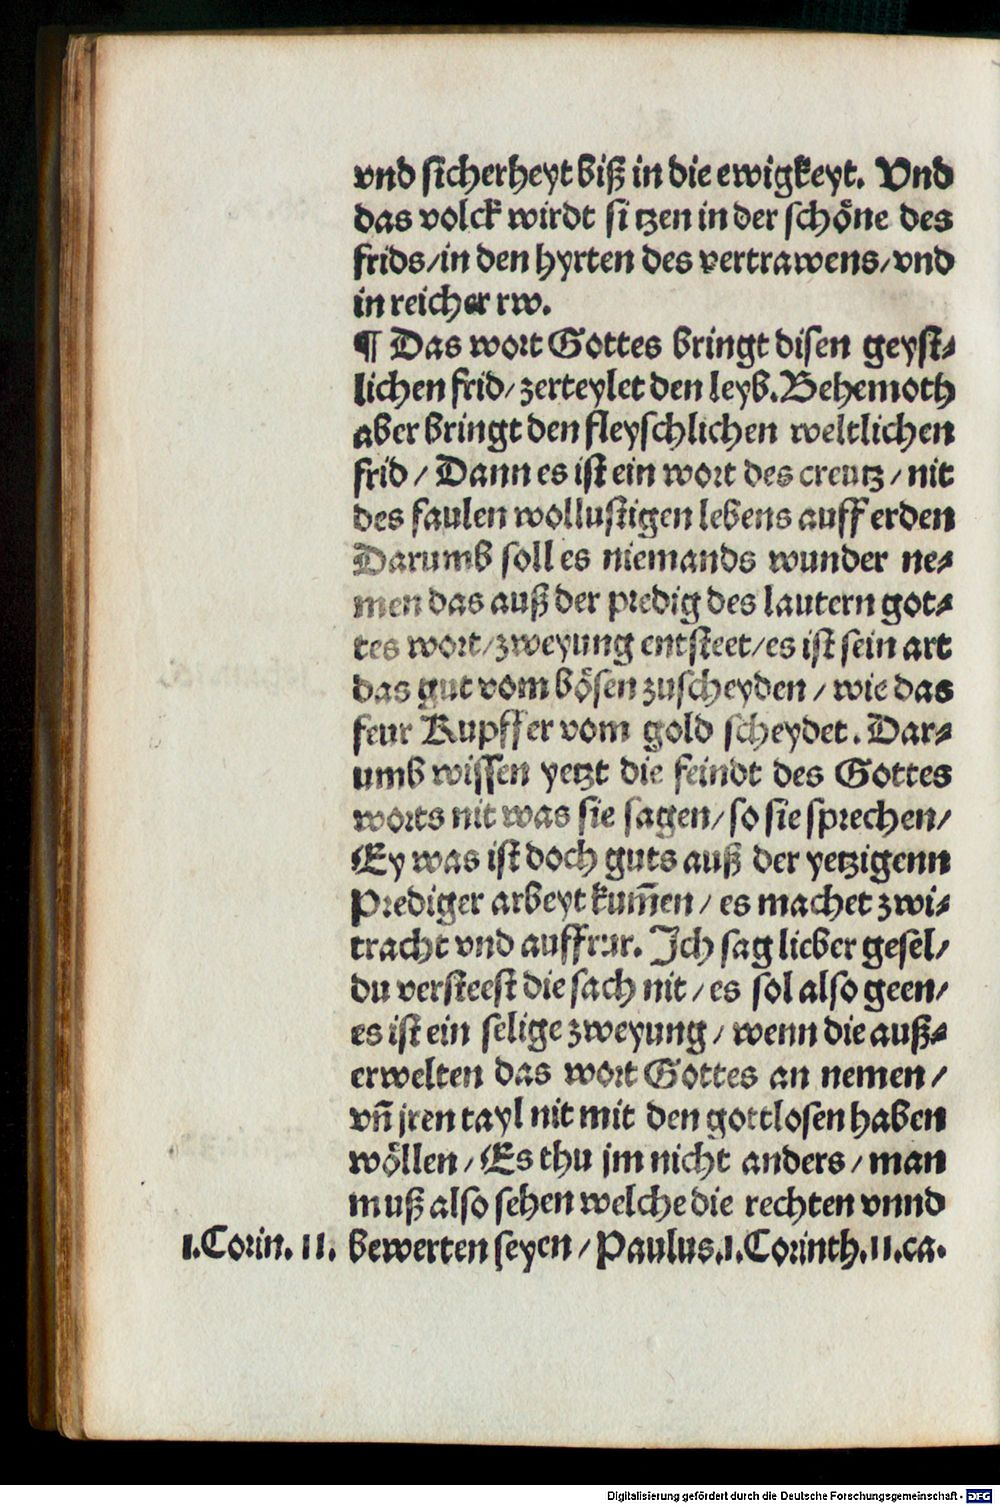 vnd sicherheyt biß in die ewigkeyt. Vnd
das volck wirdt si tzen in der schöne des
frids/in den hyrten des vertrawens/vnd
in reicher rw.
¶ Das wort Gottes bringt disen geyst⸗
lichen frid/ zerteylet den leyb. Behemoth
aber bringt den fleyschlichen weltlichen
frid / Dann es ist ein wort des creutz / nit
des faulen wollustigen lebens auff erden
Darumb soll es niemands wunder ne⸗
men das auß der predig des lautern got⸗
tes wort/zweyung entsteet/es ist sein art
das gut vom bösen zuscheyden / wie das
feur Kupffer vom gold scheydet. Dar⸗
umb wissen yetzt die feindt des Gottes
worts nit was sie sagen/ so sie sprechen/
Ey was ist doch guts auß der yetzigenn
Prediger arbeyt kum̄en / es machet zwi⸗
tracht vnd auffrur. Ich sag lieber gesel/
du versteest die sach nit / es sol also geen/
es ist ein selige zweyung / wenn die auß⸗
erwelten das wort Gottes an nemen /
vn̄ jren tayl nit mit den gottlosen haben
wöllen / Es thu jm nicht anders / man
muß also sehen welche die rechten vnnd
1.Corin. 11. bewerten seyen / Paulus.1.Corinth.11.ca.
Digitalisierung gefördert durch die Deutsche Forschungsgemeinschaft - DFG